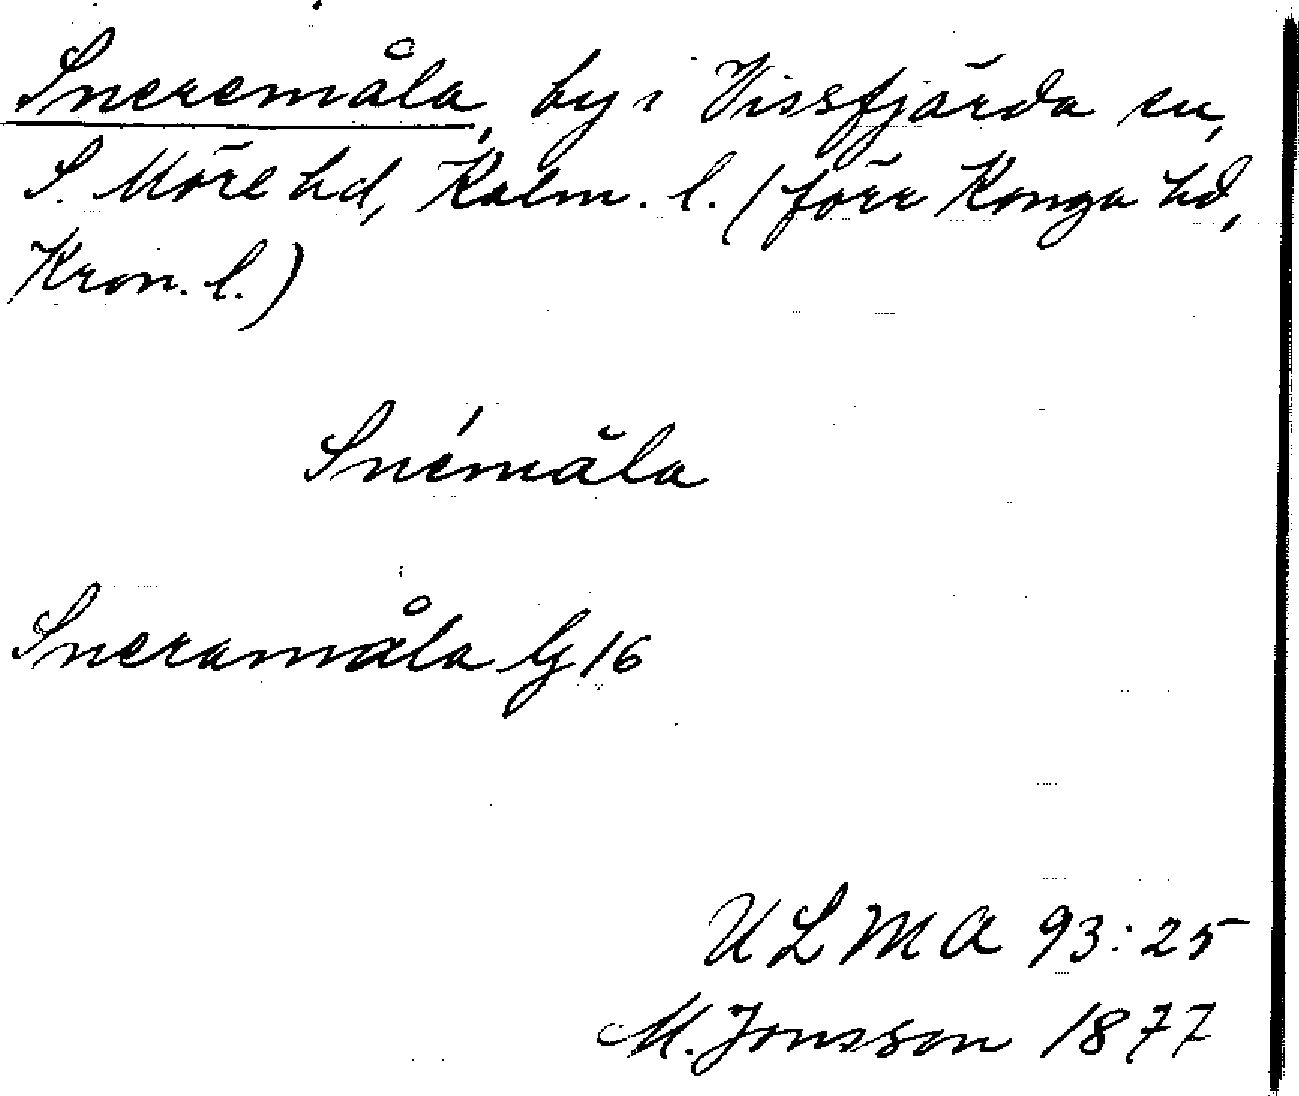 Sneremåla, by i Vissfjärda sn,
S. Möre hd, Kalm. l. (förr Konga hd,
Kron. l.)
Snémåla
Sneramåla G 16
ULMA 93:25
M. Jonsson 1877